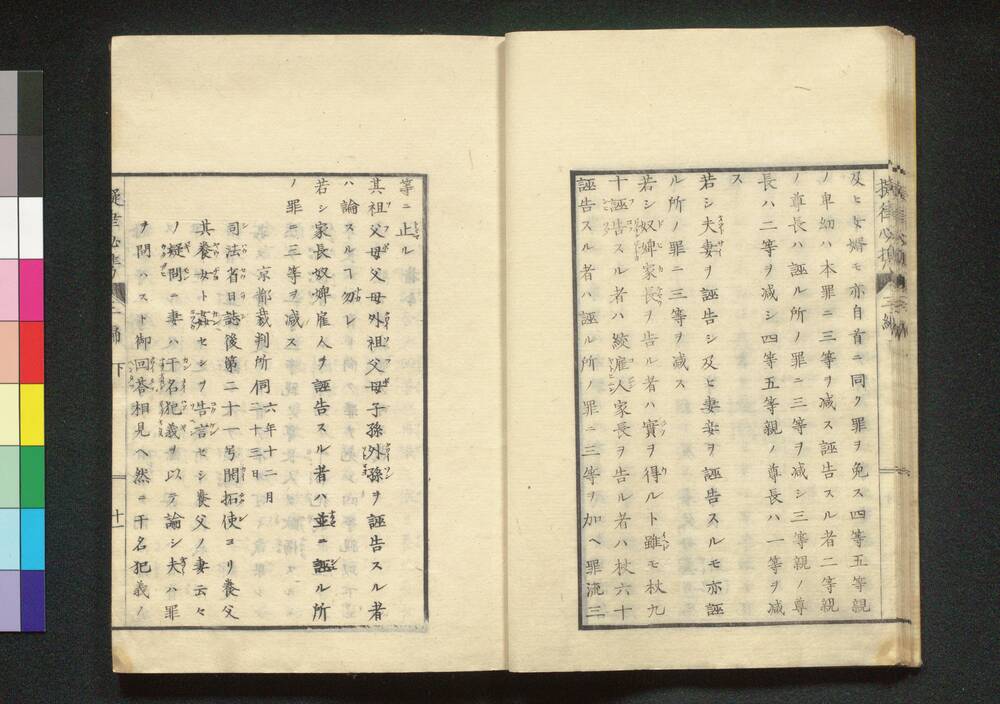 及ヒ女婿モ亦自首ニ同ク罪ヲ免ス四等五等親
ノ卑幼ハ本罪ニ三等ヲ減ス誣告スル者二等親
ノ尊長ハ誣ル所ノ罪ニ三等ヲ減シ三等親ノ尊
長ハ二等ヲ減シ四等五等親ノ尊長ハ一等ヲ減
ス
若シ夫妻ヲ誣告シ及ヒ妻妾ヲ誣告スルモ亦誣
ル所ノ罪ニ三等ヲ減ス
若シ奴婢家長ヲ告ル者ハ實ヲ得ルト雖モ杖九
十誣告スル者ハ絞雇人家長ヲ告ル者ハ杖六十
誣告スル者ハ誣ル所ノ罪ニ三等ヲ加ヘ罪流三
等ニ止ル
其祖父母父母外祖父母子孫外孫ヲ誣告スル者
ハ論スルヿ勿レ
若シ家長奴婢雇人ヲ誣告スル者ハ並ニ誣ル所
ノ罪ニ三等ヲ減ス
京都裁判所伺六年十二月二十三日
司法省日誌後第二十一号開拓使ヨリ養父
其養女ト姦セシヲ告言セシ養父ノ妻云々
ノ疑問ニ妻ハ干名犯義ヲ以テ論シ夫ハ罪
ヲ問ハスト御回答相見ヘ然ニ干名犯義ノ
下
十一